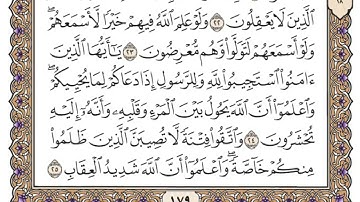 ٱلَّذِينَ لَا يَعْقِلُونَ ٢٢ وَلَوْ عَلِمَ ٱللَّهُ فِيهِمْ خَيْرًا لَّأَسْمَعَهُمْ ۖ
وَلَوْ أَسْمَعَهُمْ لَتَوَلَّوا۟ وَّهُم مُّعْرِضُونَ ٢٣ يَـٰٓأَيُّهَا ٱلَّذِينَ
ءَامَنُوا۟ ٱسْتَجِيبُوا۟ لِلَّهِ وَلِلرَّسُولِ إِذَا دَعَاكُمْ لِمَا يُحْيِيكُمْ ۖ
وَٱعْلَمُوٓا۟ أَنَّ ٱللَّهَ يَحُولُ بَيْنَ ٱلْمَرْءِ وَقَلْبِهِۦ وَأَنَّهُۥٓ إِلَيْهِ
تُحْشَرُونَ ٢٤ وَٱتَّقُوا۟ فِتْنَةً لَّا تُصِيبَنَّ ٱلَّذِينَ ظَلَمُوا۟
مِنكُمْ خَآصَّةً ۖ وَٱعْلَمُوٓا۟ أَنَّ ٱللَّهَ شَدِيدُ ٱلْعِقَابِ ٢٥
١٧٩